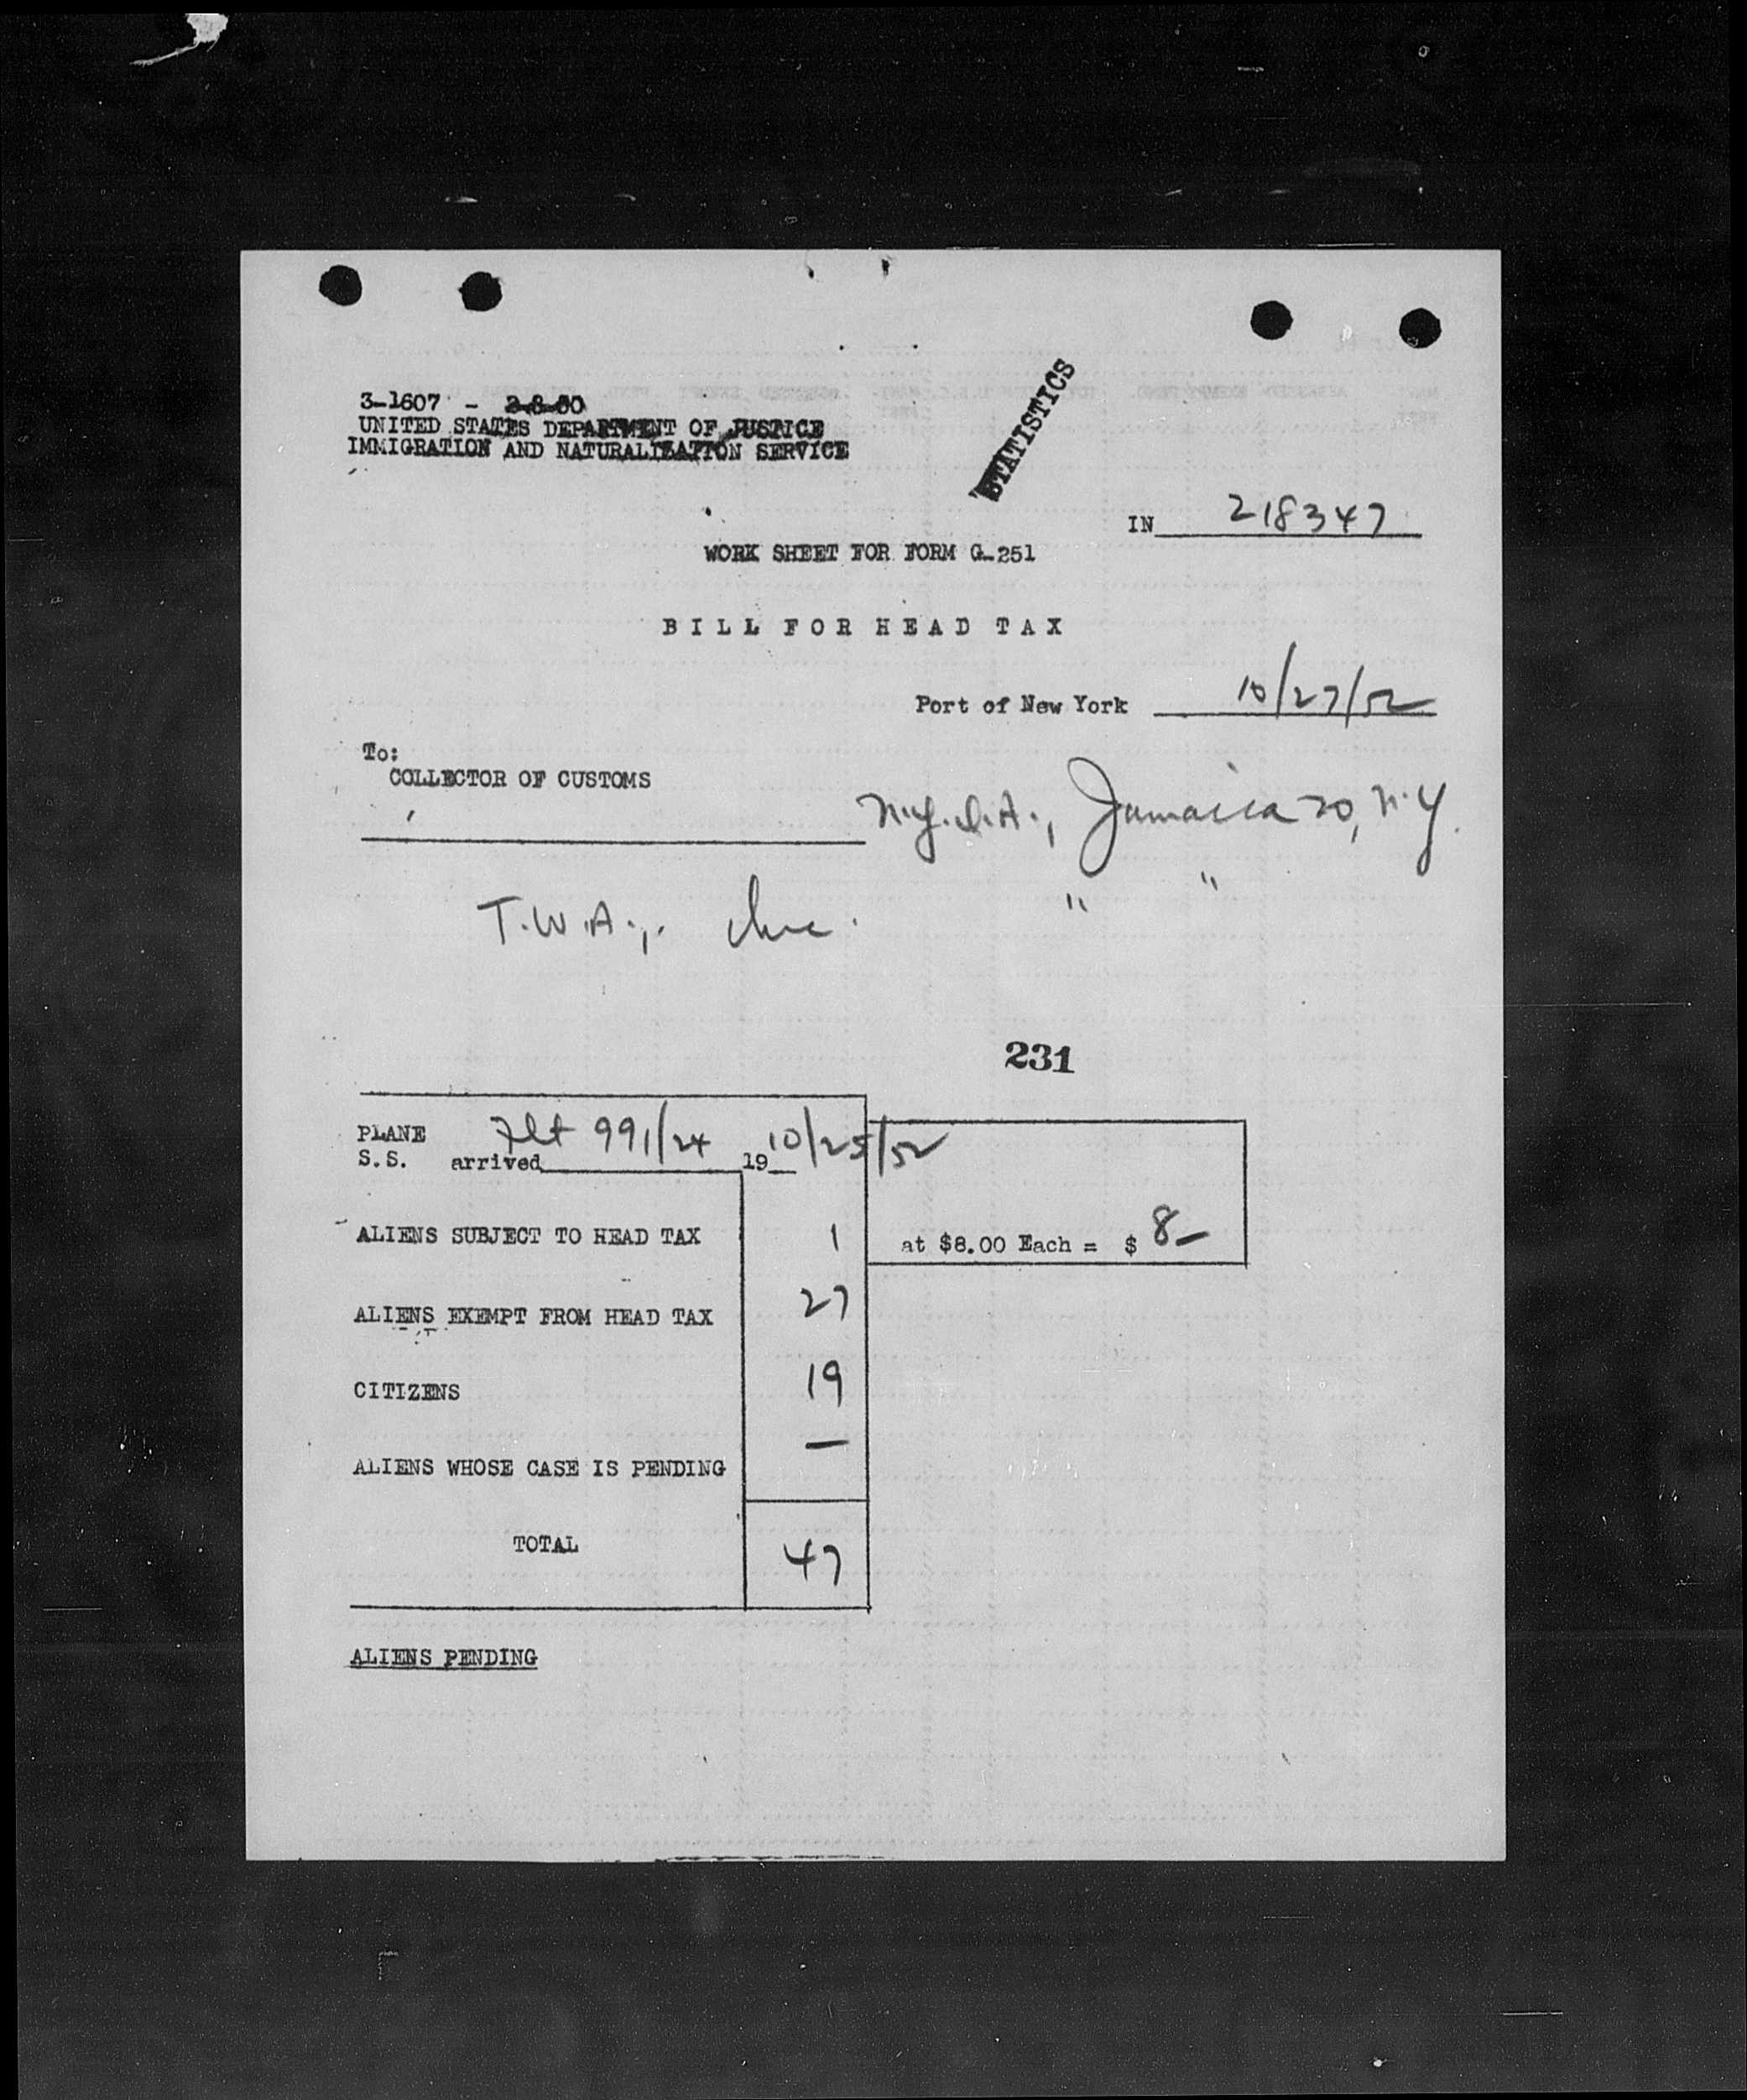 3-1607 - 2-8-50
UNITED STATES DEPARTMENT OF JUSTICE
IMMIGRATION AND NATURALIZATION SERVICE
STATISTICS
IN 218347
WORK SHEET FOR FORM G-251
BILL FOR HEAD TAX
Port of New York 10/27/52
To:
COLLECTOR OF CUSTOMS
N.Y.I.A., Jamaica 20, N.Y.
T.W.A., Inc. " "
231
PLANE Flt 991/24 10/25/52
S.S. arrived 19
ALIENS SUBJECT TO HEAD TAX 1 at $8.00 Each = $ 8-
ALIENS EXEMPT FROM HEAD TAX 27
CITIZENS 19
ALIENS WHOSE CASE IS PENDING —
TOTAL 47
ALIENS PENDING